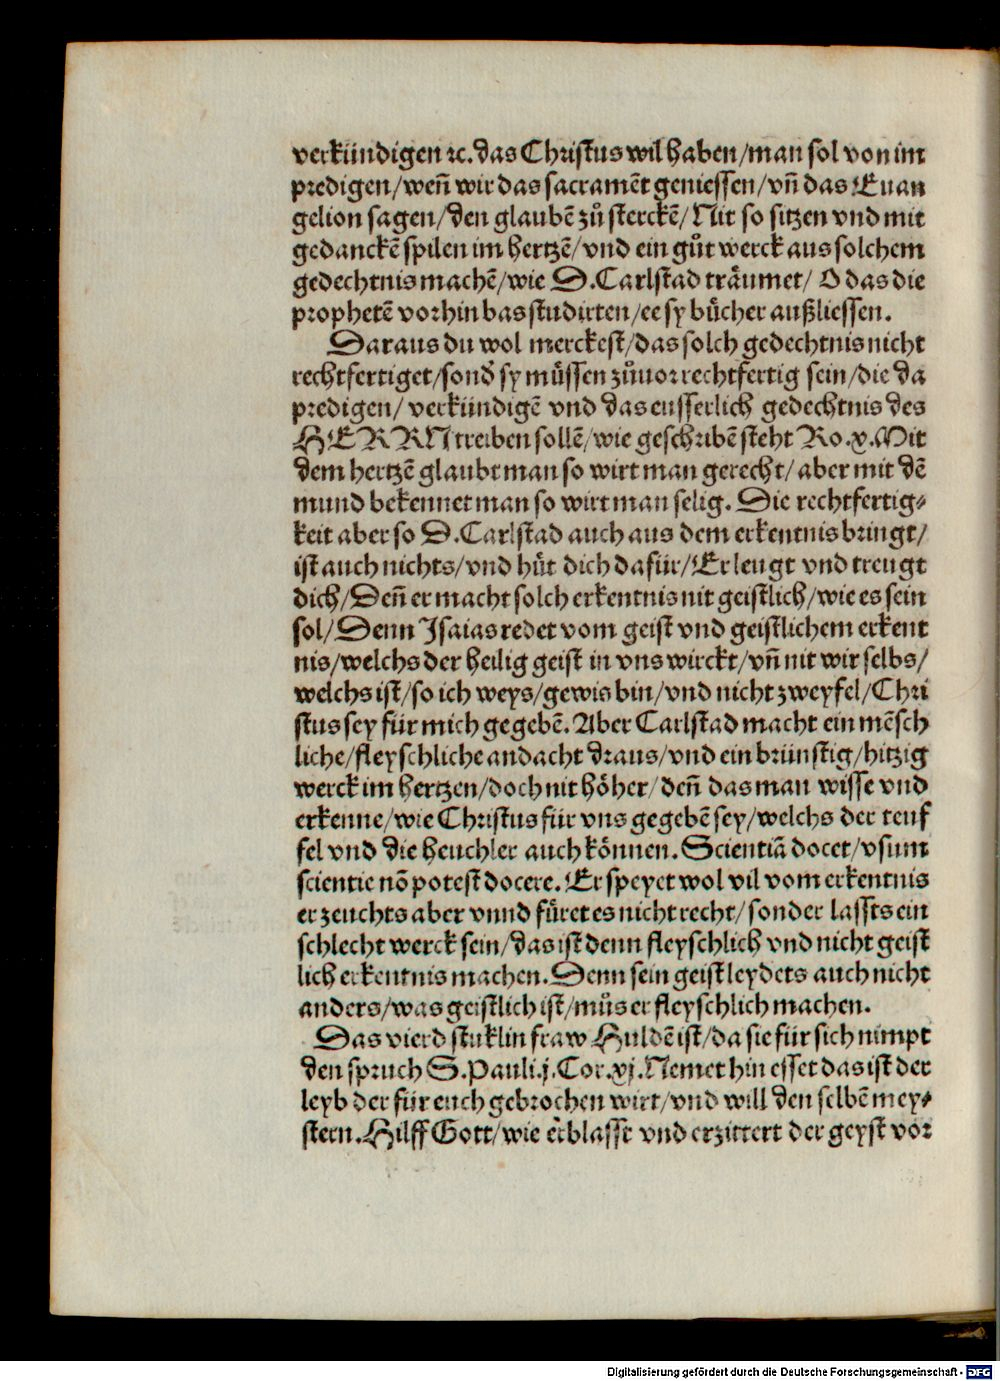 verkündigen ⁊c. das Christus wil haben/man sol von im
predigen/wen̄ wir das sacramēt geniessen/vn̄ das Euan
gelion sagen/den glaubē zů sterckē/Nit so sitzen vnd mit
gedanckē spilen im hertzē/vnd ein gůt werck aus solchem
gedechtnis machē/wie D.Carlstad träumet/ O das die
prophetē vorhin bas studirten/ee sy bůcher außliessen.
Daraus du wol merckest/das solch gedechtnis nicht
rechtfertiget/sonď sy můssen zůuor rechtfertig sein/die da
predigen/ verkündigē vnd das eusserlich gedechtnis des
HERRN treiben sollē/wie geschribē steht Ro.x.Mit
dem hertzē glaubt man so wirt man gerecht/aber mit dē
mund bekennet man so wirt man selig. Die rechtfertig⸗
keit aber so D.Carlstad auch aus dem erkentnis bringt/
ist auch nichts/vnd hůt dich dafür/Er leugt vnd treugt
dich/Den̄ er macht solch erkentnis nit geistlich/wie es sein
sol/Denn Isaias redet vom geist vnd geistlichem erkent
nis/welchs der heilig geist in vns wirckt/vn̄ nit wir selbs/
welchs ist/so ich weys/gewis bin/vnd nicht zweyfel/Chri
stus sey für mich gegebē. Aber Carlstad macht ein mēsch
liche/fleyschliche andacht draus/vnd ein brünstig/hitzig
werck im hertzen/doch nit höher/den̄ das man wisse vnd
erkenne/wie Christus für vns gegebē sey/welchs der teuf
fel vnd die heuchler auch können. Scientiā docet/vsum
scientie nō potest docere. Er speyet wol vil vom erkentnis
er zeuchts aber vnnd fůret es nicht recht/sonder lassts ein
schlecht werck sein/das ist denn fleyschlich vnd nicht geist
lich erkentnis machen. Denn sein geist leydets auch nicht
anders/was geistlich ist/můs er fleyschlich machen.
Das vierd stuklin fraw Huldē ist/da sie für sich nimpt
den spruch S.Pauli.j.Cor.xj.Nemet hin esset das ist der
leyb der für euch gebrochen wirt/vnd will den selbē mey⸗
stern.Hilff Gott/wie erblasst vnd erzittert der geyst vor
Digitalisierung gefördert durch die Deutsche Forschungsgemeinschaft - DFG